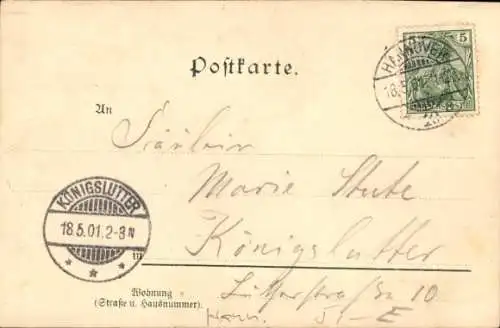 5
HANNOVER
18.5.01
Postkarte.
An
Fräulein
Marie Stute
KÖNIGSLUTTER
18.5.01.2-3N
* * *
Königslutter
Wohnung
(Straße u. Hausnummer).
10